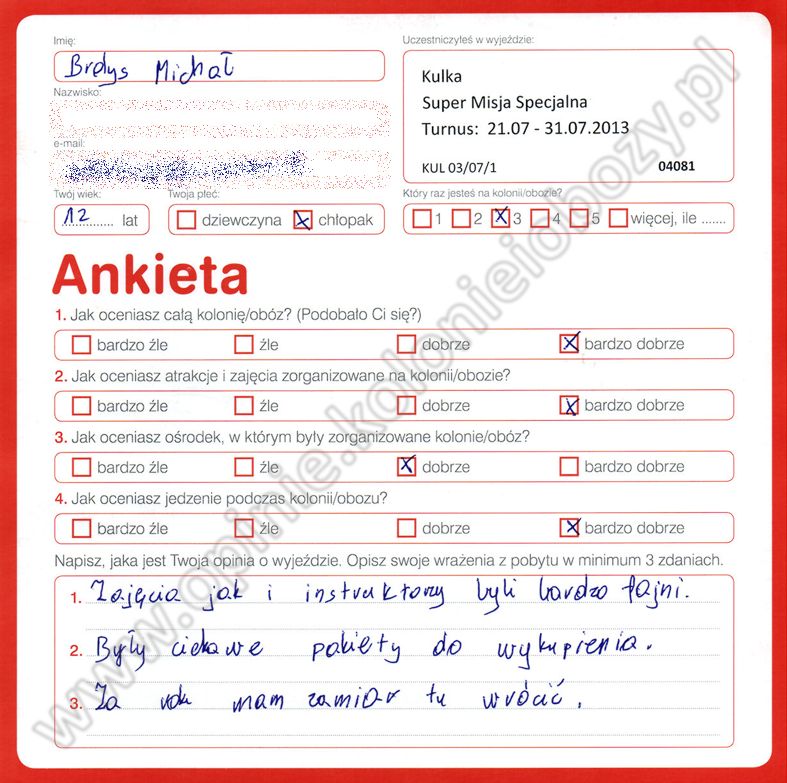 Imię:
Brdys Michał
Nazwisko:
e-mail:
Twój wiek:
12 lat
Twoja płeć:
dziewczyna chłopak
Uczestniczyłeś w wyjeździe:
Kulka
Super Misja Specjalna
Turnus: 21.07 - 31.07.2013
KUL 03/07/1 04081
Który raz jesteś na kolonii/obozie?
1 2 3 4 5 więcej, ile .......
Ankieta
1. Jak oceniasz całą kolonię/obóz? (Podobało Ci się?)
bardzo źle źle dobrze bardzo dobrze
2. Jak oceniasz atrakcje i zajęcia zorganizowane na kolonii/obozie?
bardzo źle źle dobrze bardzo dobrze
3. Jak oceniasz ośrodek, w którym były zorganizowane kolonie/obóz?
bardzo źle źle dobrze bardzo dobrze
4. Jak oceniasz jedzenie podczas kolonii/obozu?
bardzo źle źle dobrze bardzo dobrze
Napisz, jaka jest Twoja opinia o wyjeździe. Opisz swoje wrażenia z pobytu w minimum 3 zdaniach.
1. Zajęcia jak i instruktorzy byli bardzo fajni.
2. Były ciekawe pakiety do wykupienia.
3. Za rok mam zamiar tu wrócić.
www.opinie.kolonieiobozy.pl